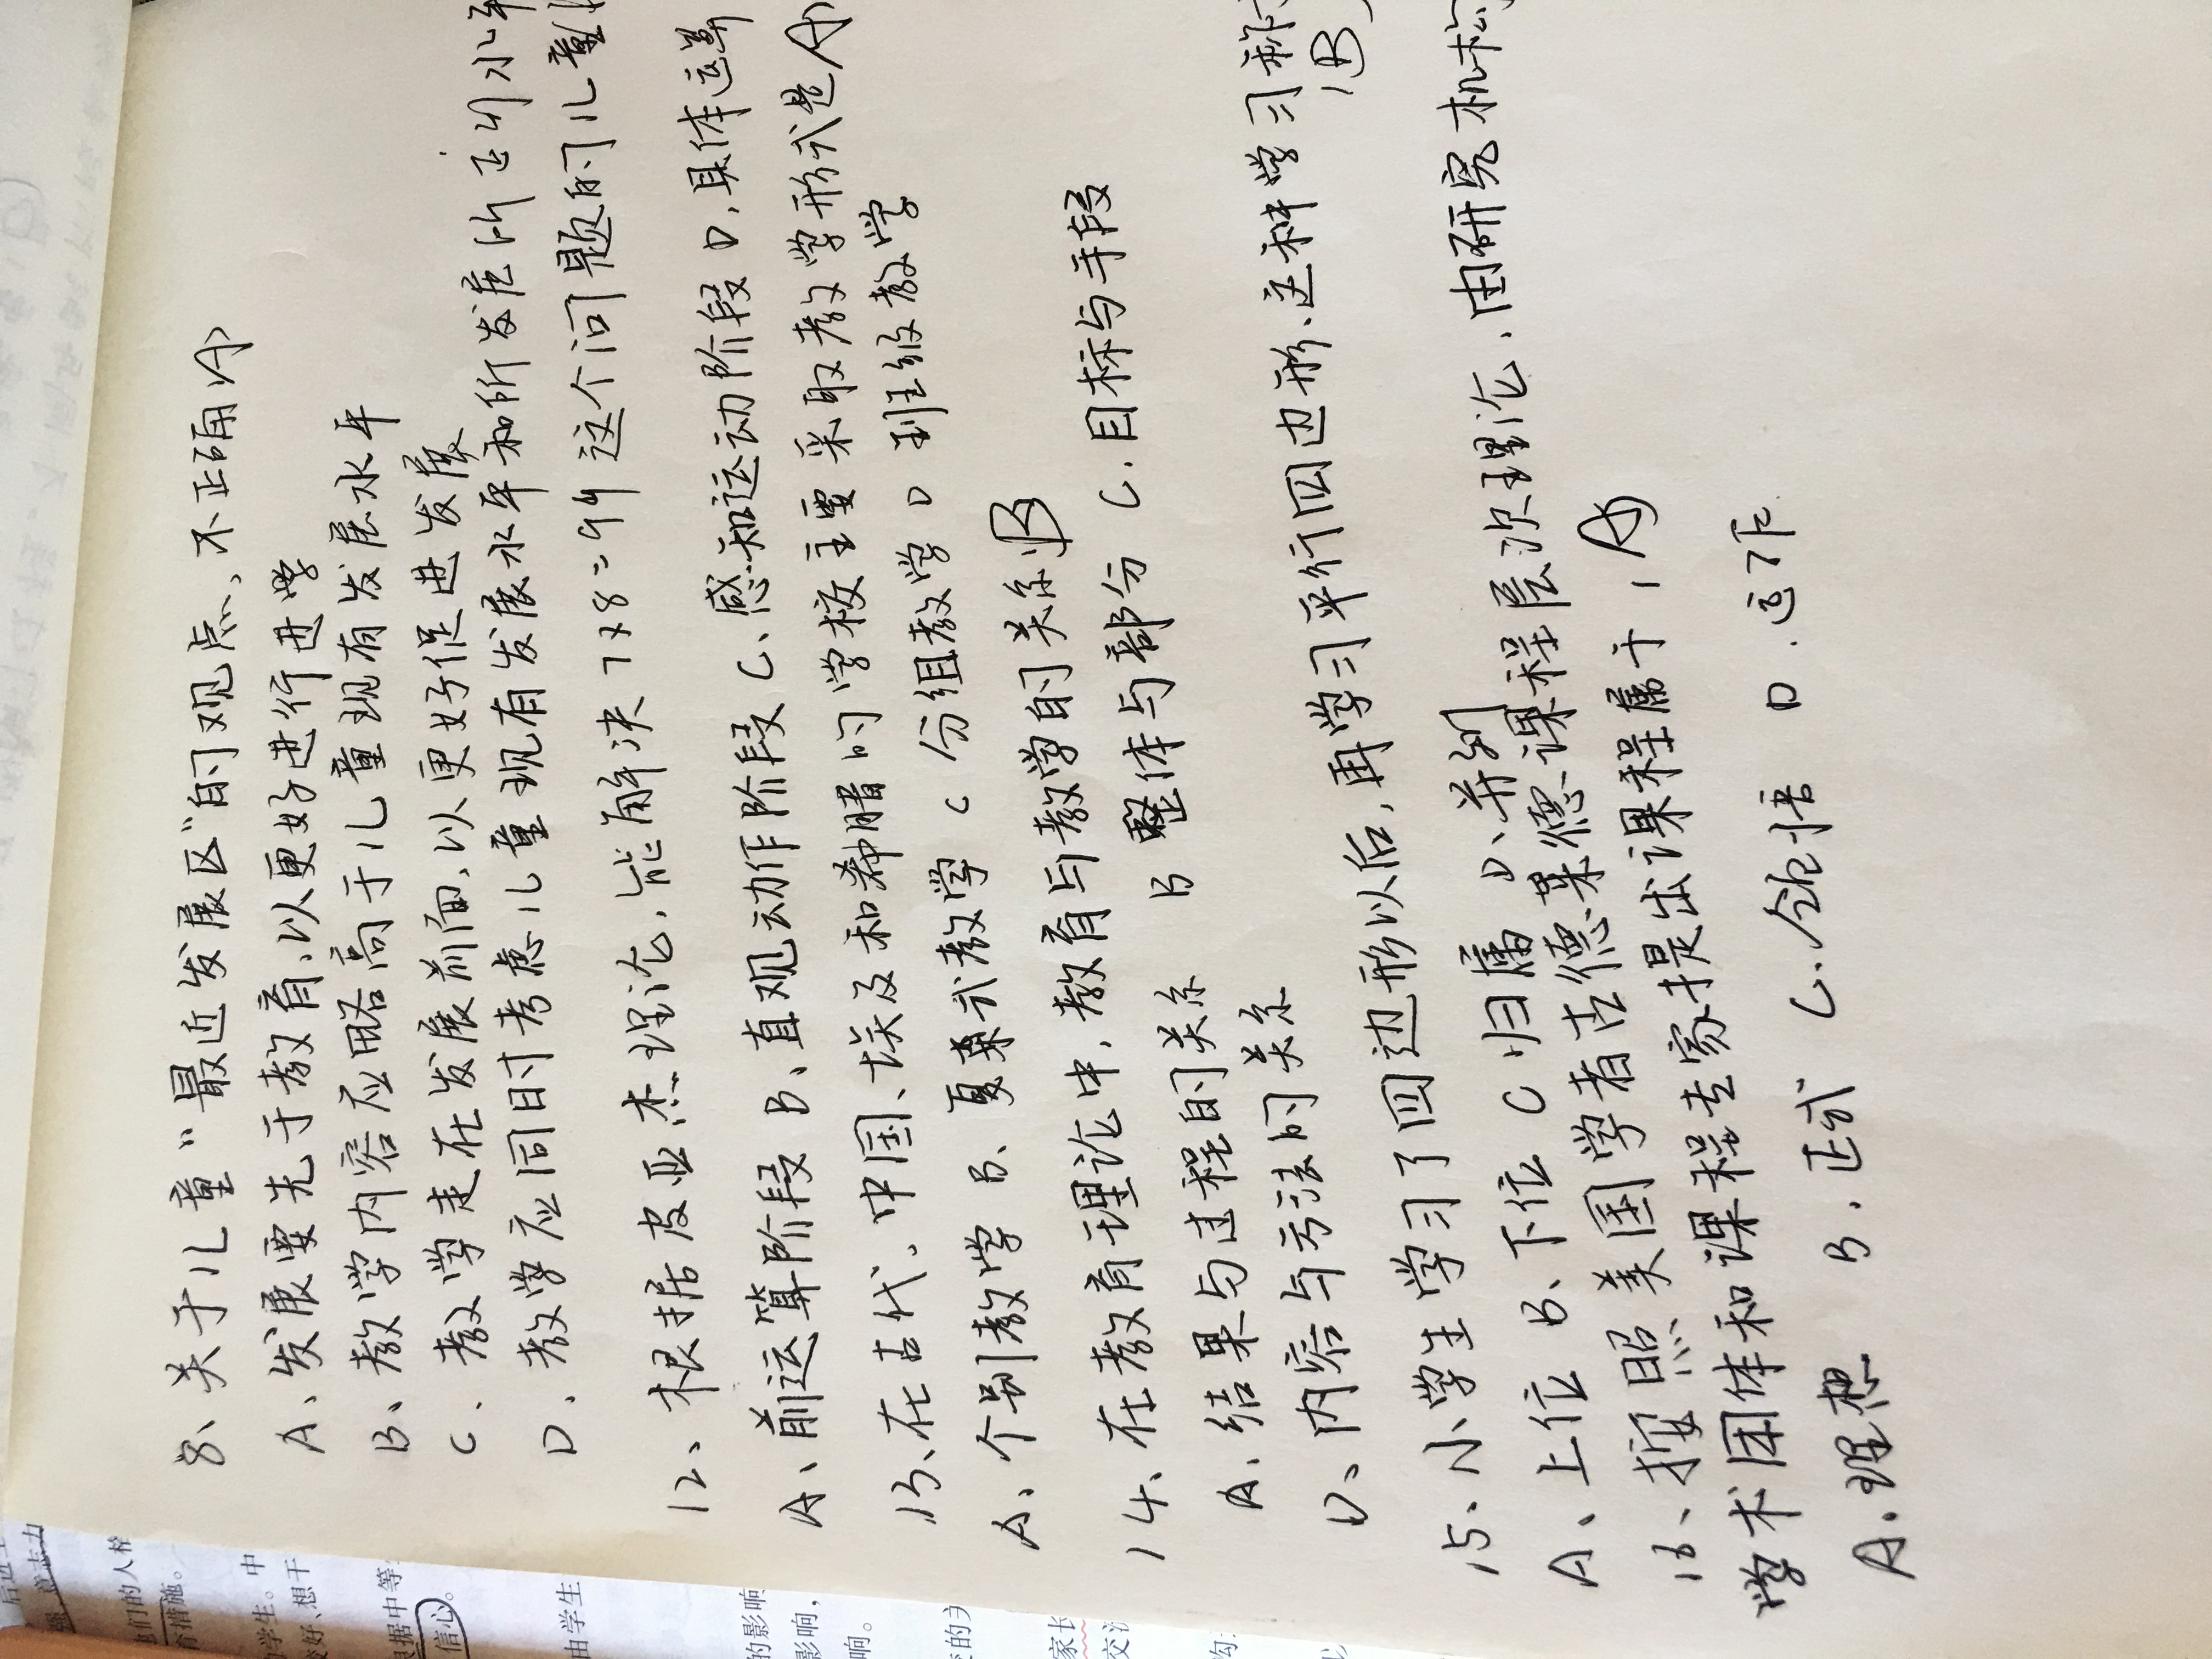 后进生
强,意志力
他们的人格
育措施。
的学生。中
较好、想干
根据中等
信心。
由学生
的影响
影响,
响。
家长
8、关于儿童“最近发展区”的观点,不正确(A)
A、发展要先于教育,以更好进行进学
B、教学内容应略高于儿童现有发展水平
C、教学走在发展前面,以更好促进发展
D、教学应同时考虑儿童现有发展水平和所发展所达到水平
12、根据皮亚杰理论,能解决7x8=99这个问题的儿童
A、前运算阶段 B、直观动作阶段 C、感知运动阶段 D,具体运算
13、在古代。中国、埃及和希腊的学校主要采取教学形式是(A)
A、个别教学 B、复式教学 C 分组教学 D 班级教学
14、在教育理论中,教育与教学的关系(B
A、结果与过程的关系 B 整体与部分 C.目标与手段
D、内容与方法的关系
15、小学生学习了四边形以后,再学习平行四边形、这种学习称
(B)
A、上位 B、下位 C 归属 D、并列
16、按照美国学者古德莱德课程层次理论,由研究机构
学术团体和课程专家提出课程属于(A)
A.理想 B.正式 C.领悟 D.运作